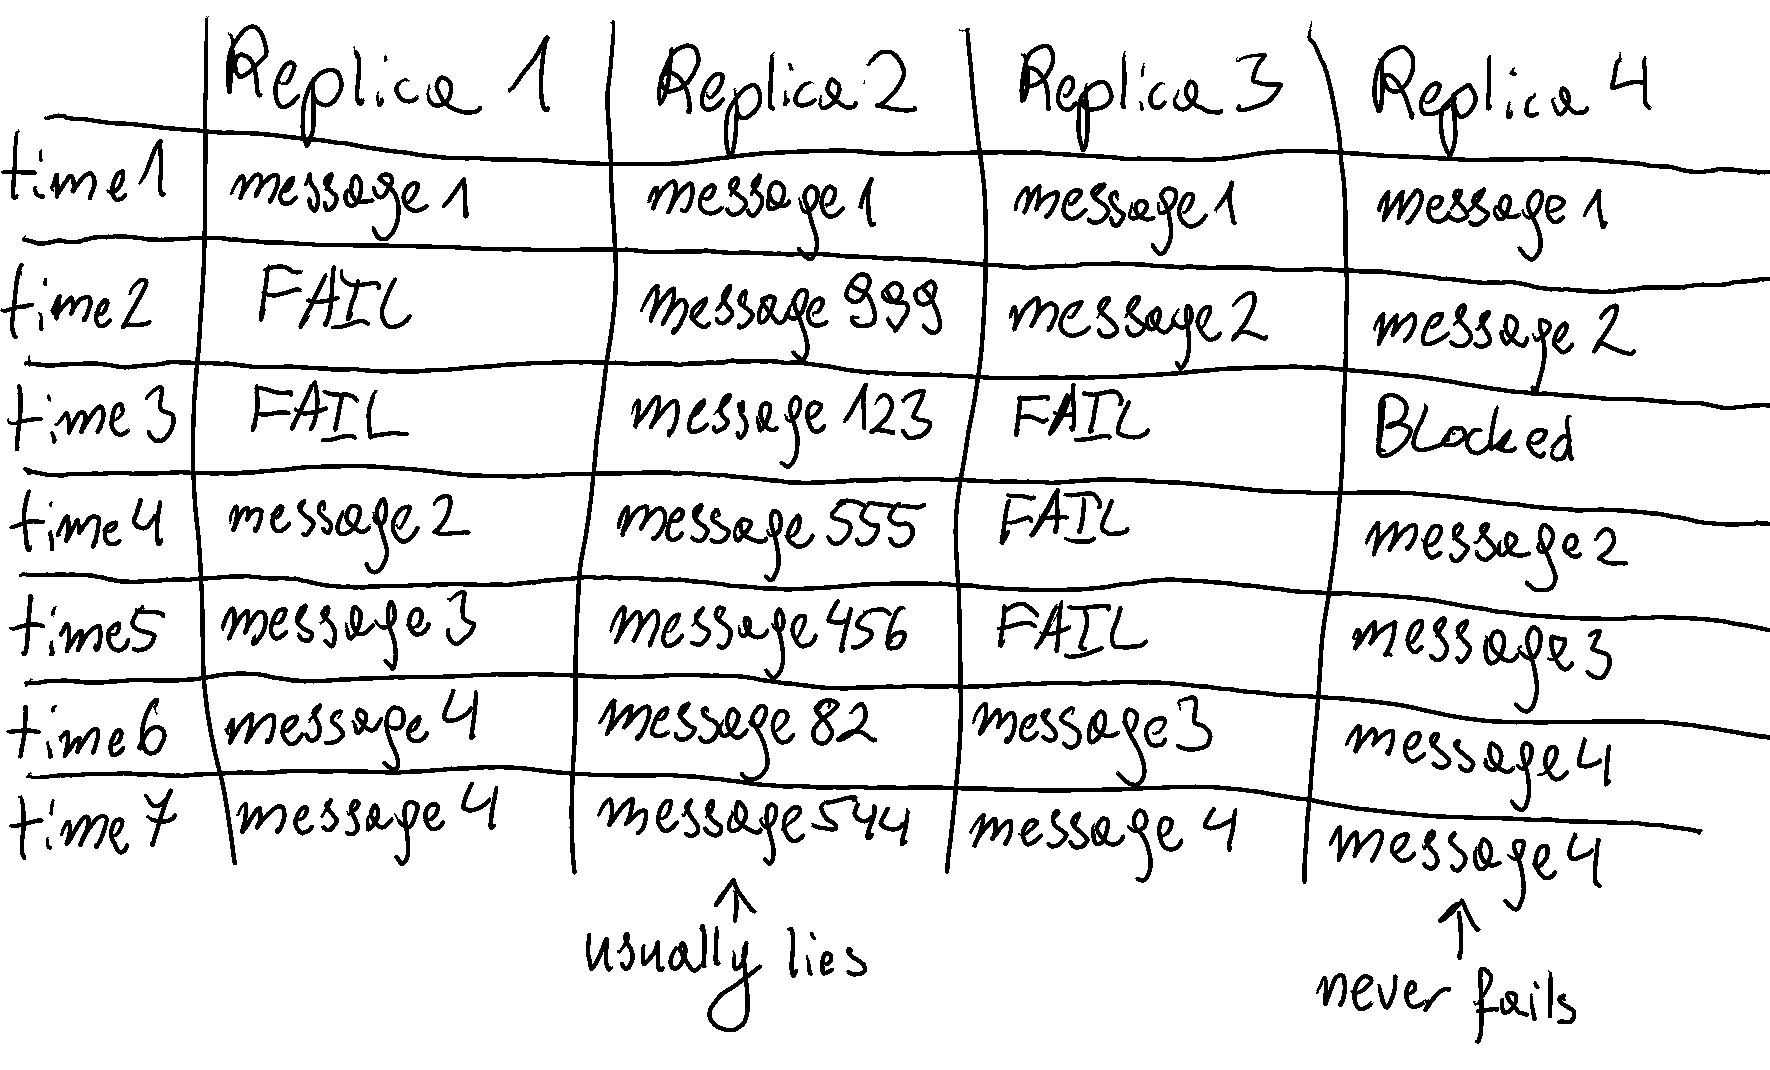 Replica 1 Replica 2 Replica 3 Replica 4
time1 message1 message1 message1 message1
time2 FAIL message 999 message2 message 2
time3 FAIL message 123 FAIL Blocked
time4 message2 message 555 FAIL message2
time5 message3 message 456 FAIL message3
time6 message4 message 82 message3 message4
time7 message4 message544 message 4 message4
usually lies never fails